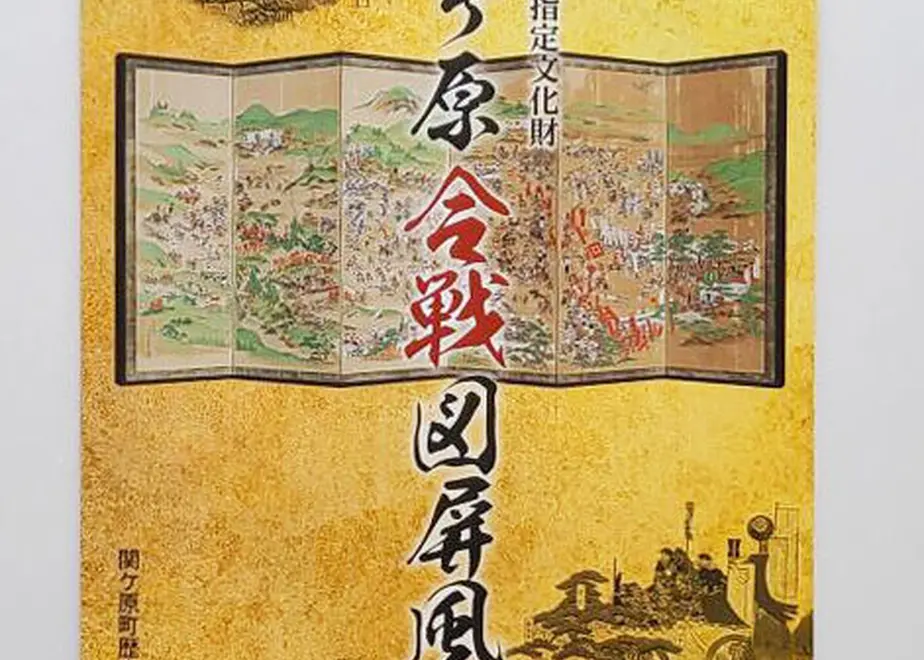 指定文化財
ヶ原合戦図屏風
関ケ原町歴